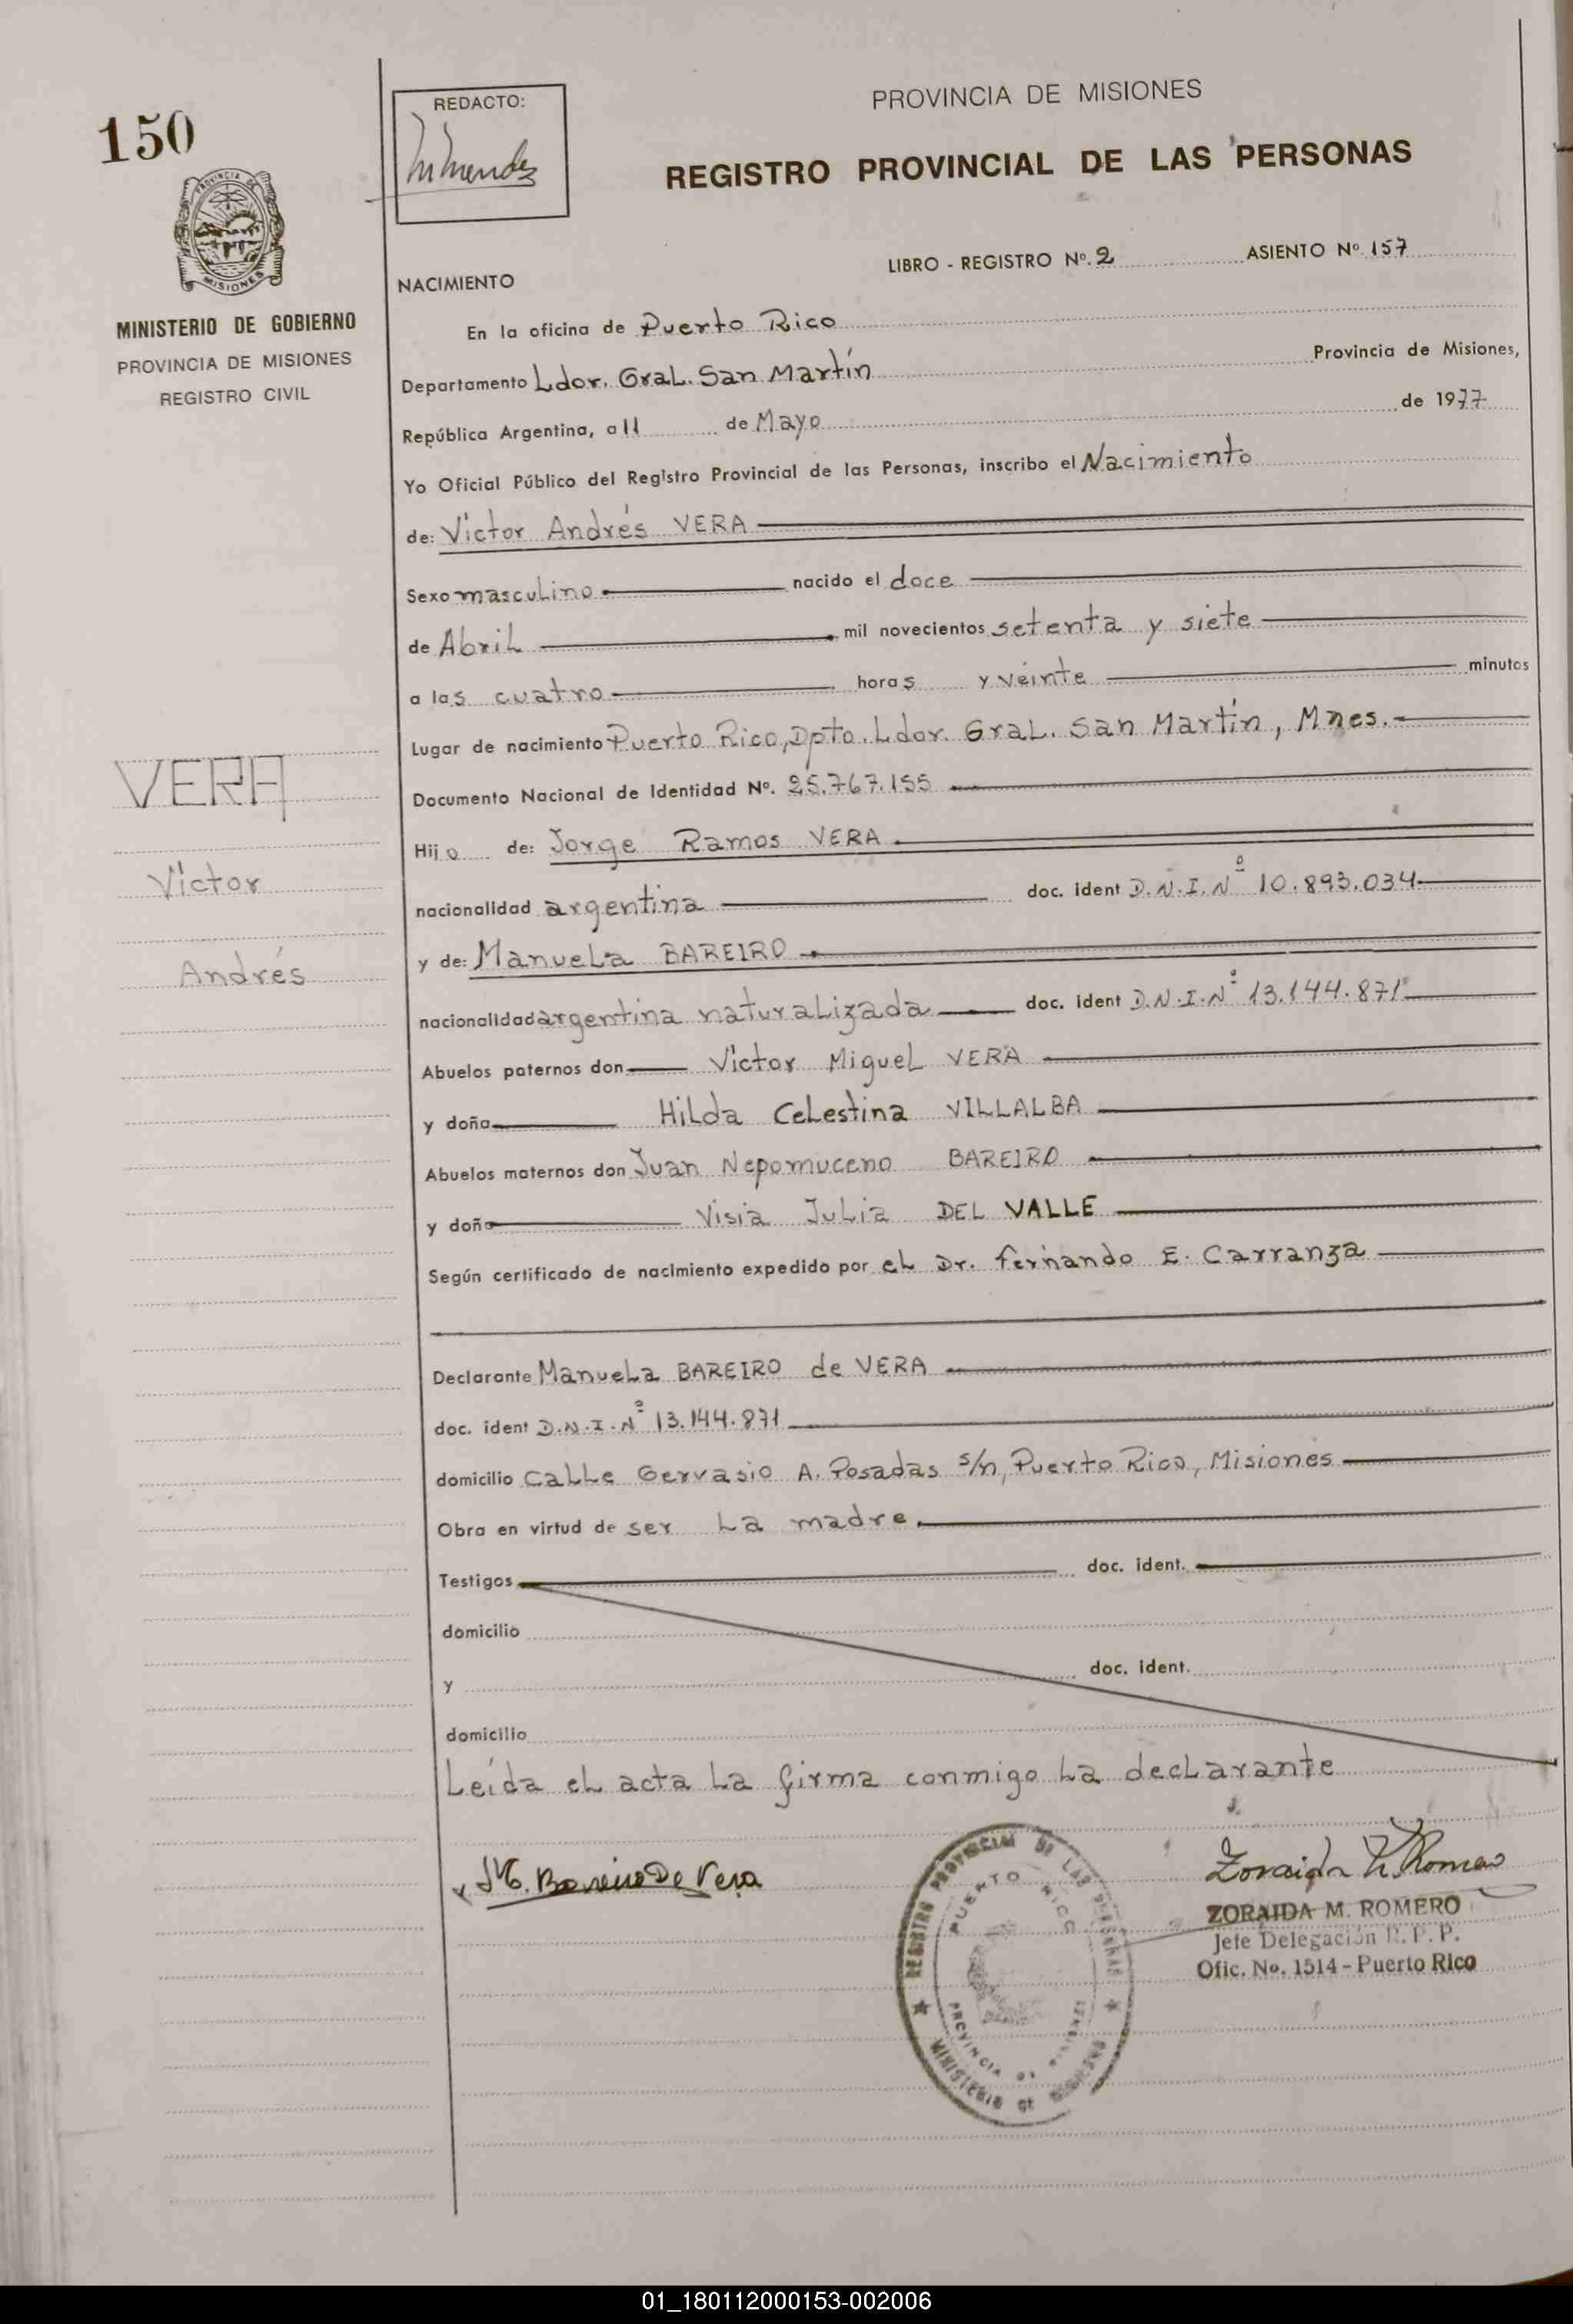 150
PROVINCIA DE MISIONES
MINISTERIO DE GOBIERNO
PROVINCIA DE MISIONES
REGISTRO CIVIL
REDACTO:
PROVINCIA DE MISIONES
REGISTRO PROVINCIAL DE LAS PERSONAS
LIBRO - REGISTRO Nº. 2 ASIENTO Nº 157
NACIMIENTO
En la oficina de Puerto Rico
Departamento Ldor. Gral. San Martín Provincia de Misiones,
República Argentina, a 11 de Mayo de 1977
Yo Oficial Público del Registro Provincial de las Personas, inscribo el Nacimiento
de: Víctor Andrés VERA
Sexo masculino nacido el doce
de Abril mil novecientos setenta y siete
a las cuatro horas y veinte minutos
Lugar de nacimiento Puerto Rico, Dpto. Ldor. Gral. San Martín, Mnes.
Documento Nacional de Identidad Nº. 25.767.155
Hijo de: Jorge Ramos VERA
nacionalidad argentina doc. ident D.N.I. Nº 10.893.034
y de: Manuela BAREIRO
nacionalidad argentina naturalizada doc. ident D.N.I. Nº 13.144.871
Abuelos paternos don Víctor Miguel VERA
y doña Hilda Celestina VILLALBA
Abuelos maternos don Juan Nepomuceno BAREIRO
y doña Visia Julia DEL VALLE
Según certificado de nacimiento expedido por el Dr. Fernando E. Carranza
Declarante Manuela BAREIRO de VERA
doc. ident D.N.I. Nº 13.144.871
domicilio Calle Gervasio A. Posadas s/n, Puerto Rico, Misiones
Obra en virtud de ser la madre
Testigos doc. ident.
domicilio
y doc. ident.
domicilio
Leída el acta la firma conmigo la declarante
VERA
Víctor
Andrés
M. Bareiro De Vera
Zoraida M. Romero
REGISTRO PROVINCIAL DE LAS PERSONAS
PUERTO RICO
PROVINCIA DE MISIONES
MINISTERIO DE GOBIERNO
ZORAIDA M. ROMERO
Jefe Delegación R. P. P.
Ofic. No. 1514 - Puerto Rico
01_180112000153-002006